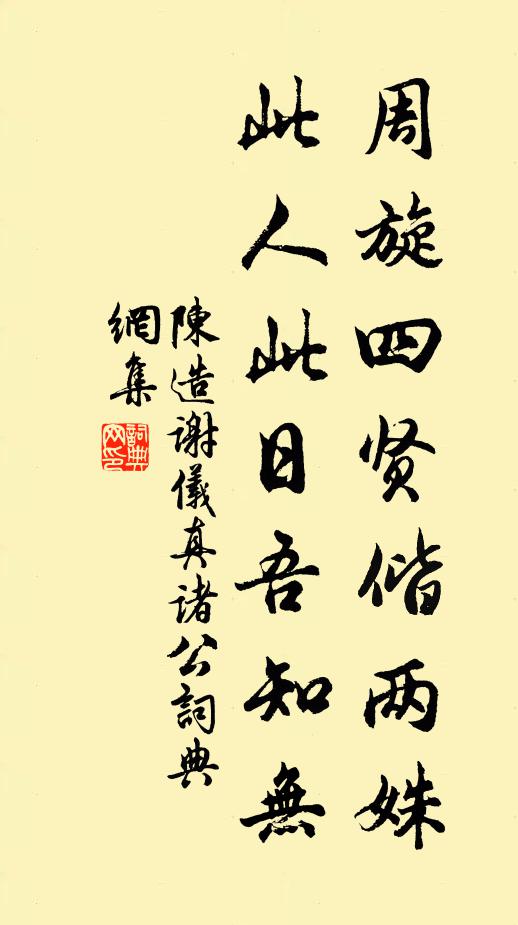 周旋四贤偕两姝
此人此日吾知無
陳造谢儀真诸公詞典
網集
詞典